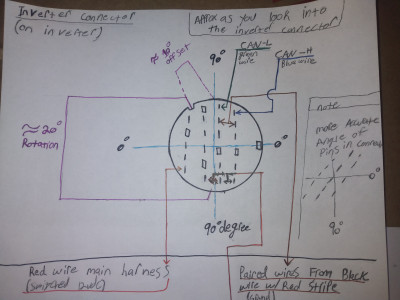 Inverter Connector
(on inverter)
Approx as you look into
the inverted connector
CAN-L
wire
CAN-H
Blue wire
≈ 90°
offset
90°
≈20°
Rotation
0°
0°
note
more Accurate
Angle of
Pins in Connector
0°
90°
90 degree
Red wire main harness
Paired wires From Black
wire w/ Red Stripe